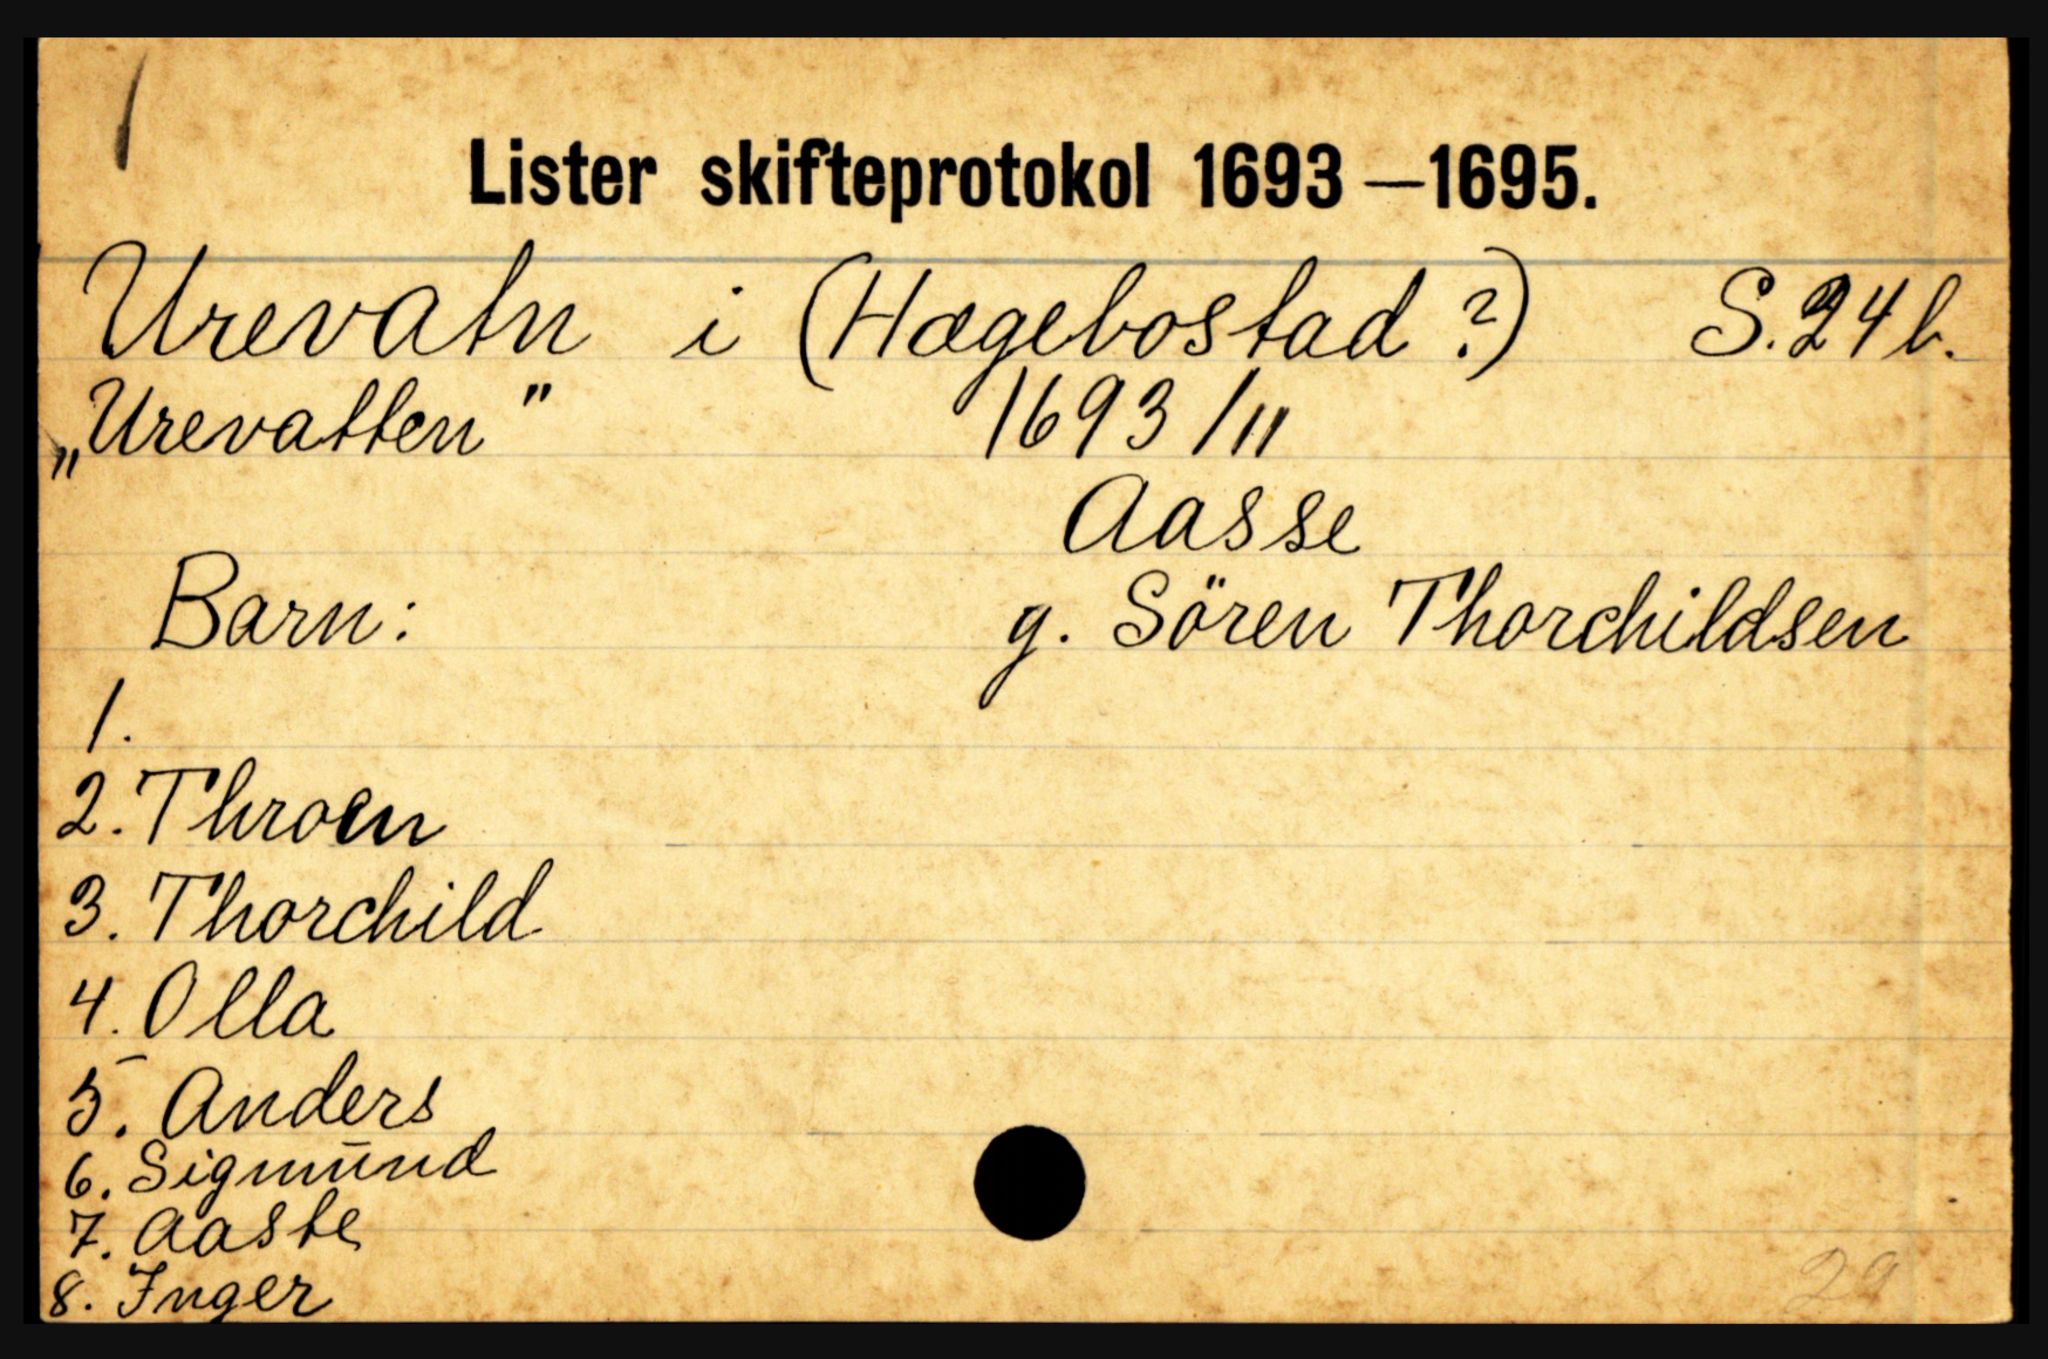 Lister skifteprotokol 1693—1695.
Urevatn i (Hægebostad?) S. 24 b.
„Urevatten" 1693/11
Aasse
Barn: g. Sören Thorchildsen
1.
2. Throen
3. Thorchild
4. Olla
5. Anders
6. Sigmund
7. Aaste
8. Inger
29